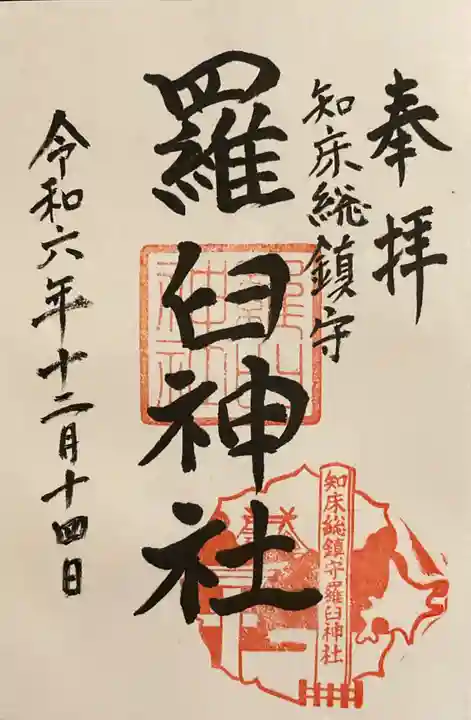 奉拝
知床総鎮守
羅臼神社
令和六年十二月十四日
羅臼神社
知床総鎮守羅臼神社